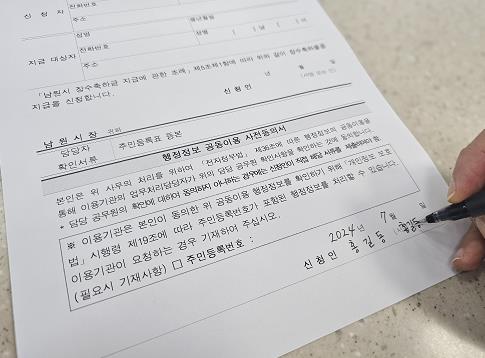 신 청 자
전화번호
주소
생년월일
지급 대상자
성명
성별 ( ) 남 ( ) 여
전화번호
주소
「남원시 장수축하금 지급에 관한 조례」 제5조제1항에 따라 위와 같이 장수축하물품
지급을 신청합니다.
년 월 일
신 청 인
남 원 시 장 귀하
담당자
확인서류
주민등록표 등본
행정정보 공동이용 사전동의서
본인은 위 사무의 처리를 위하여 「전자정부법」 제36조에 따른 행정정보의 공동이용을
통해 이용기관의 업무처리담당자가 위의 담당 공무원 확인사항을 확인하는 것에 동의합니다.
* 담당 공무원의 확인에 대하여 동의하지 아니하는 경우에는 신청인이 직접 해당 서류를 제출하여야 함.
※ 이용기관은 본인이 동의한 위 공동이용 행정정보를 확인하기 위해 「개인정보 보호
법」 시행령 제19조에 따라 주민등록번호가 포함된 행정정보를 처리할 수 있습니다.
이용기관이 요청하는 경우 기재하여 주십시오.
(필요시 기재사항) □ 주민등록번호 :
2024년 7월 일
신 청 인 홍 길 동 (홍길동